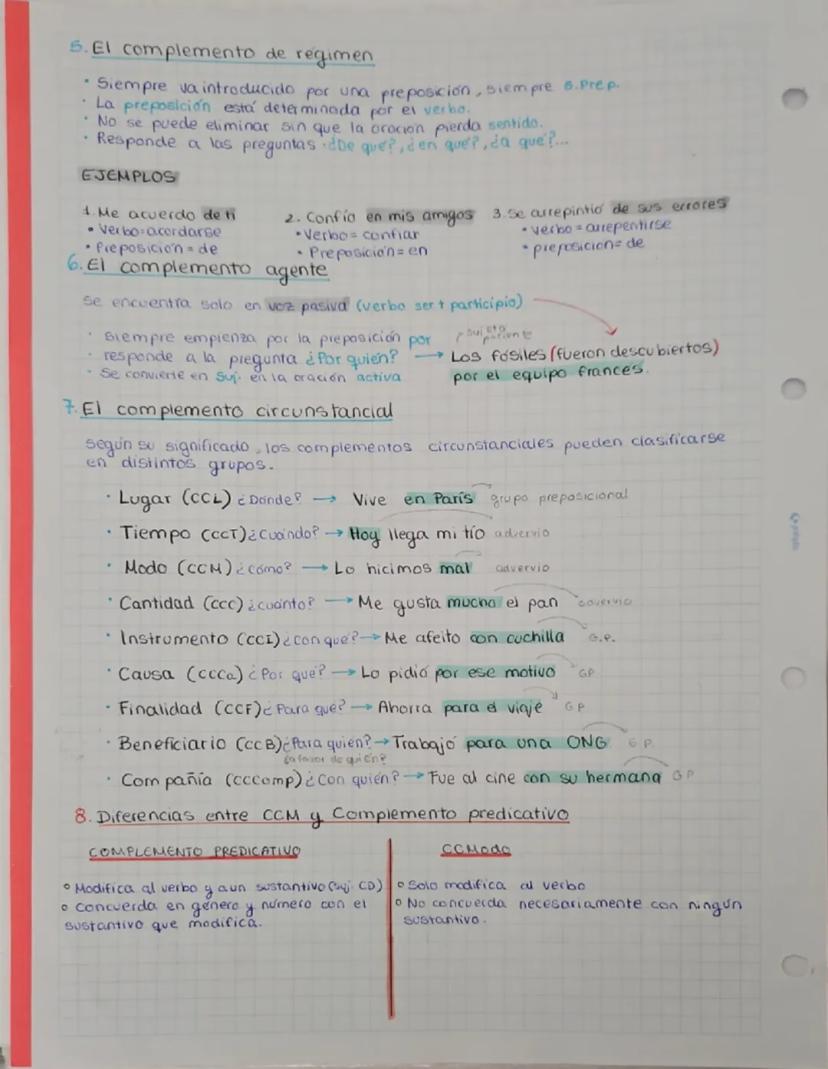 5. El complemento de regimen
· Siempre va introducido por una preposición, siempre S.Prep.
· La preposición está determinada por el verbo.
· No se puede eliminar sin que la oración pierda sentido.
· Responde a las preguntas ¿De qué?, ¿en qué?, ¿a qué?...
EJEMPLOS
1. Me acuerdo de ti 2. Confío en mis amigos 3. Se arrepintió de sus errores
• Verbo=acordarse • Verbo = confiar • verbo = arrepentirse
• Preposición = de • Preposición = en • preposicion= de
6. El complemento agente
Se encuentra solo en voz pasiva (verbo ser + participio)
· Siempre empienza por la preposición por sujeto paciente
· responde a la pregunta ¿Por quién? → Los fósiles (fueron descubiertos)
· Se convierte en Suj. en la oración activa por el equipo francés.
7. El complemento circunstancial
según su significado, los complementos circunstanciales pueden clasificarse
en distintos grupos.
· Lugar (CCL) ¿Dónde? → Vive en París grupo preposicional
· Tiempo (CCT) ¿Cuándo? → Hoy llega mi tío advervio
· Modo (CCM) ¿cómo? → Lo hicimos mal advervio
· Cantidad (CCC) ¿cuánto? → Me gusta mucho el pan advervio
· Instrumento (CCI) ¿con qué? → Me afeito con cuchilla G.P.
· Causa (CCCa) ¿Por qué? → Lo pidió por ese motivo GP
· Finalidad (CCF) ¿Para qué? → Ahorra para el viaje GP
· Beneficiario (CCB) ¿Para quien? → Trabajó para una ONG GP
¿a favor de quién?
· Compañía (CCComp) ¿Con quién? → Fue al cine con su hermana GP
8. Diferencias entre CCM y Complemento predicativo
COMPLEMENTO PREDICATIVO CCModo
° Modifica al verbo y a un sustantivo (suj. CD) ° Solo modifica al verbo
° Concuerda en género y número con el ° No concuerda necesariamente con ningún
sustantivo que modifica. sustantivo.